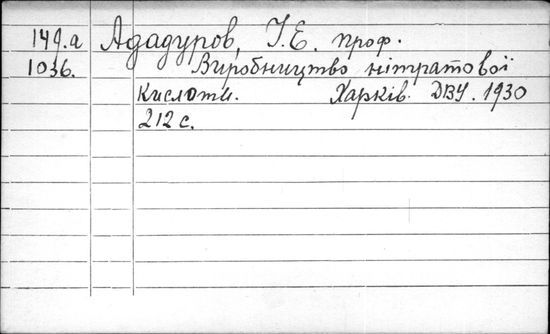 149.а Ададуров, І.Е. проф.
1036. Виробництво нітратової
кислоти. Харків. ДВУ. 1930
212 с.